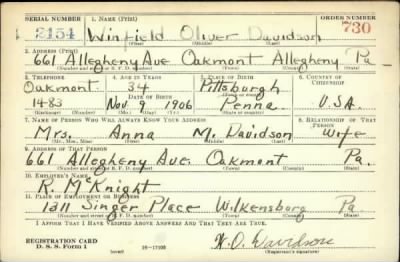 SERIAL NUMBER 1. NAME (Print) ORDER NUMBER
2154 Winfield Oliver Davidson 730
(First) (Middle) (Last)
2. ADDRESS (Print)
661 Allegheny Ave Oakmont Allegheny Pa
(Number and street or R. F. D. number) (Town) (County) (State)
3. TELEPHONE 4. AGE IN YEARS 5. PLACE OF BIRTH 6. COUNTRY OF CITIZENSHIP
Oakmont 34 Pittsburgh
DATE OF BIRTH
1483 Nov. 9 1906 Penna U.S.A.
(Exchange) (Number) (Mo.) (Day) (Yr.) (State or country)
7. NAME OF PERSON WHO WILL ALWAYS KNOW YOUR ADDRESS 8. RELATIONSHIP OF THAT PERSON
Mrs. Anna M. Davidson Wife
(Mr., Mrs., Miss) (First) (Middle) (Last)
9. ADDRESS OF THAT PERSON
661 Allegheny Ave. Oakmont Pa.
(Number and street or R. F. D. number) (Town) (County) (State)
10. EMPLOYER'S NAME
R. McKnight
11. PLACE OF EMPLOYMENT OR BUSINESS
1311 Singer Place Wilkensburg Pa
(Number and street or R. F. D. number) (Town) (County) (State)
I AFFIRM THAT I HAVE VERIFIED ABOVE ANSWERS AND THAT THEY ARE TRUE.
REGISTRATION CARD
D. S. S. Form 1 (over) 16-17105 W. O. Davidson